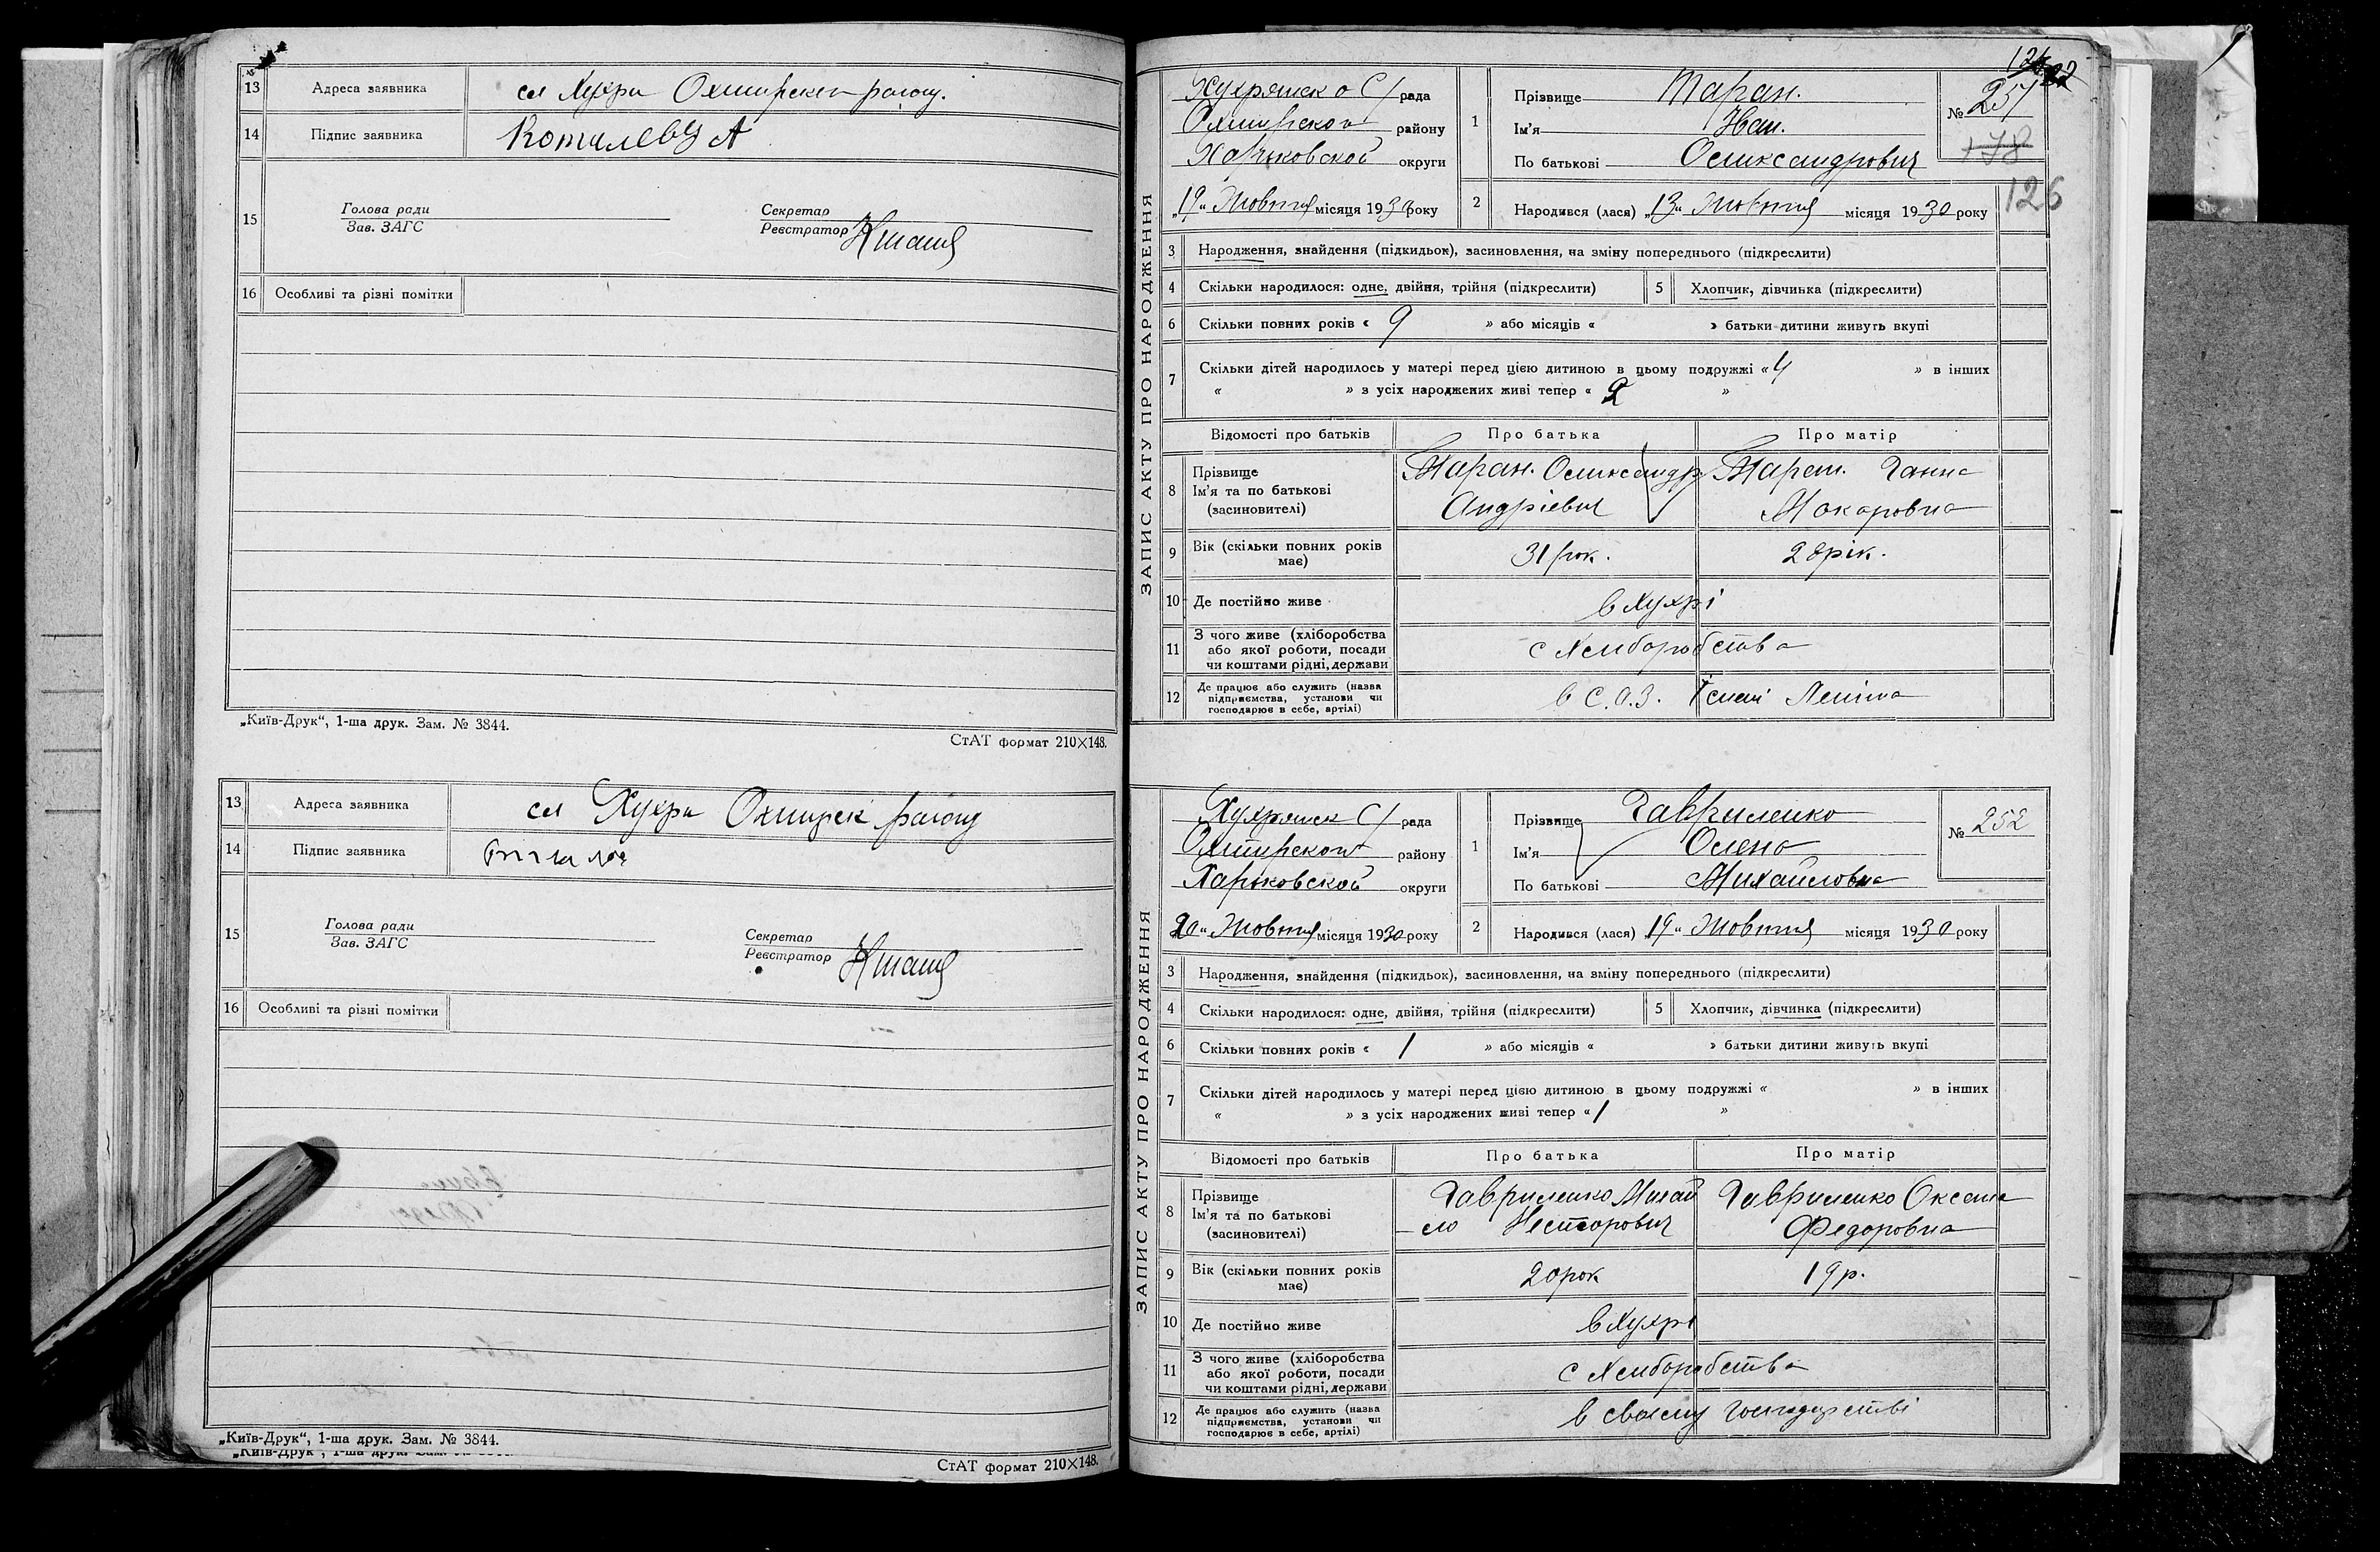 13 Адреса заявника сл Хухри Охтирског району.
14 Підпис заявника
15 Голова ради Секретар
Зав. ЗАГС Реєстратор
16 Особливі та різні помітки
„Київ-Друк“, 1-ша друк. Зам. № 3844.
СтАТ формат 210×148.
13 Адреса заявника сл Хухри Охтирск району
14 Підпис заявника
15 Голова ради Секретар
Зав. ЗАГС Реєстратор
16 Особливі та різні помітки
„Київ-Друк“, 1-ша друк. Зам. № 3844.
СтАТ формат 210×148.
ЗАПИС АКТУ ПРО НАРОДЖЕННЯ
Хухрянск о С/рада
району
Харьковской округи
„19“ Жовтня місяця 1930 року
1 Прізвище Таран.
Ім'я Іван.
По батькові Олександрович
№ 251
178
126
2 Народився (лася) „13“ Жовтня місяця 1930 року
3 Народження, знайдення (підкидьок), засиновлення, на зміну попереднього (підкреслити)
4 Скільки народилося: одне, двійня, трійня (підкреслити) 5 Хлопчик, дівчинка (підкреслити)
6 Скільки повних років « 9 » або місяців « » батьки дитини живуть вкупі
7 Скільки дітей народилось у матері перед цією дитиною в цьому подружжі « 4 » в інших
« » з усіх народжених живі тепер « 2 »
Відомості про батьків Про батька Про матір
8 Прізвище Таран. Олександр Таран. Ганна
Ім'я та по батькові Андрієвич Макаровна
(засиновителі)
9 Вік (скільки повних років 31 рок. 28 рік.
має)
10 Де постійно живе в Хухрі
11 З чого живе (хліборобства с Хліборобства
або якої роботи, посади
чи коштами рідні, держави
12 Де працює або служить (назва в С.О.З. Імені Леніна
підприємства, установи чи
господарює в себе, артілі)
ЗАПИС АКТУ ПРО НАРОДЖЕННЯ
Хухрянск С/рада
району
Харьковской округи
20“ Жовтня місяця 1930 року
1 Прізвище Гавриленко
Ім'я Олена
По батькові Михайловна
№ 252
2 Народився (лася) „19“ Жовтня місяця 1930 року
3 Народження, знайдення (підкидьок), засиновлення, на зміну попереднього (підкреслити)
4 Скільки народилося: одне, двійня, трійня (підкреслити) 5 Хлопчик, дівчинка (підкреслити)
6 Скільки повних років « 1 » або місяців « » батьки дитини живуть вкупі
7 Скільки дітей народилось у матері перед цією дитиною в цьому подружжі « » в інших
« » з усіх народжених живі тепер « 1 »
Відомості про батьків Про батька Про матір
8 Прізвище Гавриленко Михай Гавриленко Оксана
Ім'я та по батькові ло Несторович Федоровна
(засиновителі)
9 Вік (скільки повних років 20 рок 19 р.
має)
10 Де постійно живе в Хухрі
11 З чого живе (хліборобства с Хліборобства
або якої роботи, посади
чи коштами рідні, держави
12 Де працює або служить (назва в своєму господарстві
підприємства, установи чи
господарює в себе, артілі)